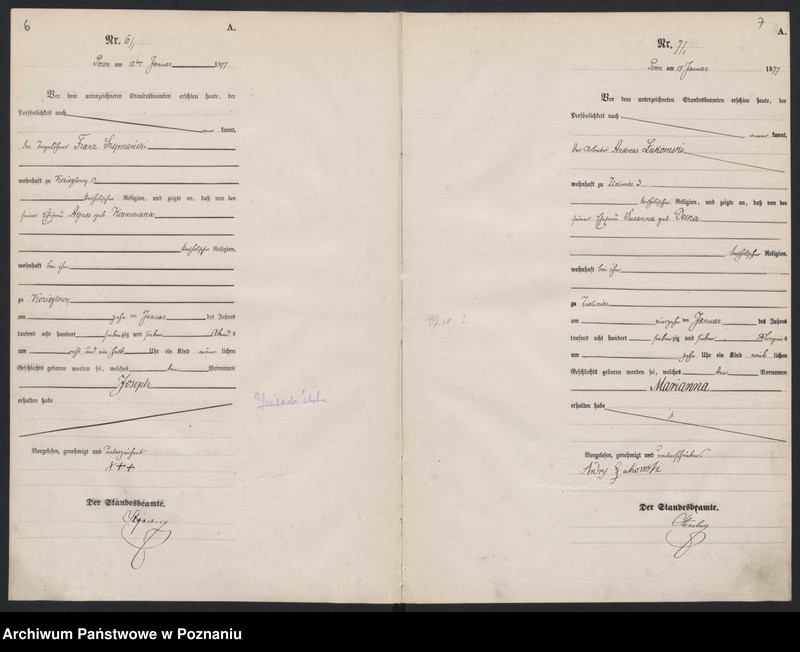 6
A.
Nr. 6/1
Posen am 12ten Januar 1877
Vor dem unterzeichneten Standesbeamten erschien heute, der
Persönlichkeit nach
kannt,
der Franz Szymański
wohnhaft zu Koziegłowy 12
katholischer Religion, und zeigte an, daß von der
seiner Ehefrau Agnes geb.
katholischer Religion,
wohnhaft bei ihm
zu Koziegłowy
am zehn ten Januar des Jahres
tausend acht hundert siebenzig und sieben Abend s
um acht und ein halb Uhr ein Kind männ lichen
Geschlechts geboren worden sei, welches den Vornamen
Joseph
erhalten habe
Vorgelesen, genehmigt und unterzeichnet
+++
Der Standesbeamte.
7
A.
Nr. 7/1
Posen am 15 Januar 1877
Vor dem unterzeichneten Standesbeamten erschien heute, der
Persönlichkeit nach
kannt,
der Arbeiter Andreas Łukomski
wohnhaft zu Zieliniec 3
katholischer Religion, und zeigte an, daß von der
seiner Ehefrau Susanna geb.
katholischer Religion,
wohnhaft bei ihm
zu Zieliniec
am vierzehn ten Januar des Jahres
tausend acht hundert siebenzig und sieben Morgen s
um zehn Uhr ein Kind weib lichen
Geschlechts geboren worden sei, welches den Vornamen
Marianna
erhalten habe
Vorgelesen, genehmigt und unterschrieben
Der Standesbeamte.
Archiwum Państwowe w Poznaniu